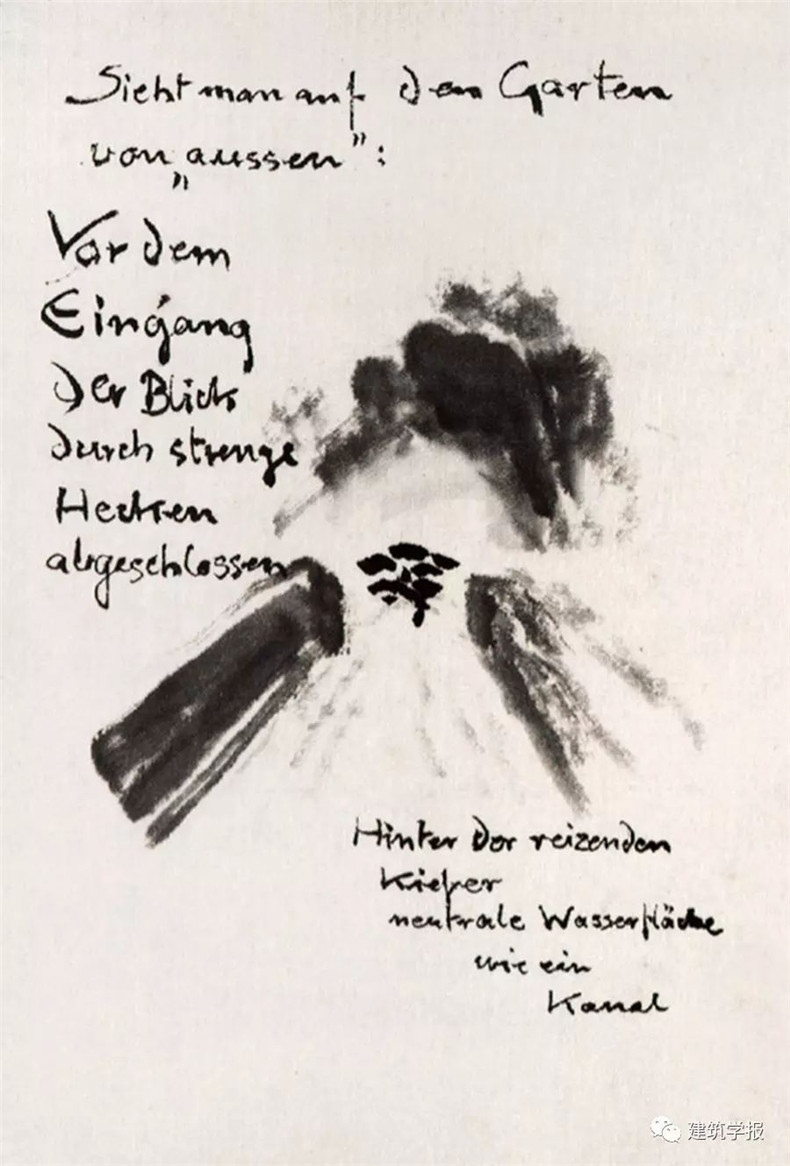 Sieht man auf den Garten
von „aussen":
Vor dem
Eingang
der Blick
durch strenge
Hecken
abgeschlossen
Hinter der reizenden
Kiefer
neutrale Wasserfläche
wie ein
Kanal
建筑学报